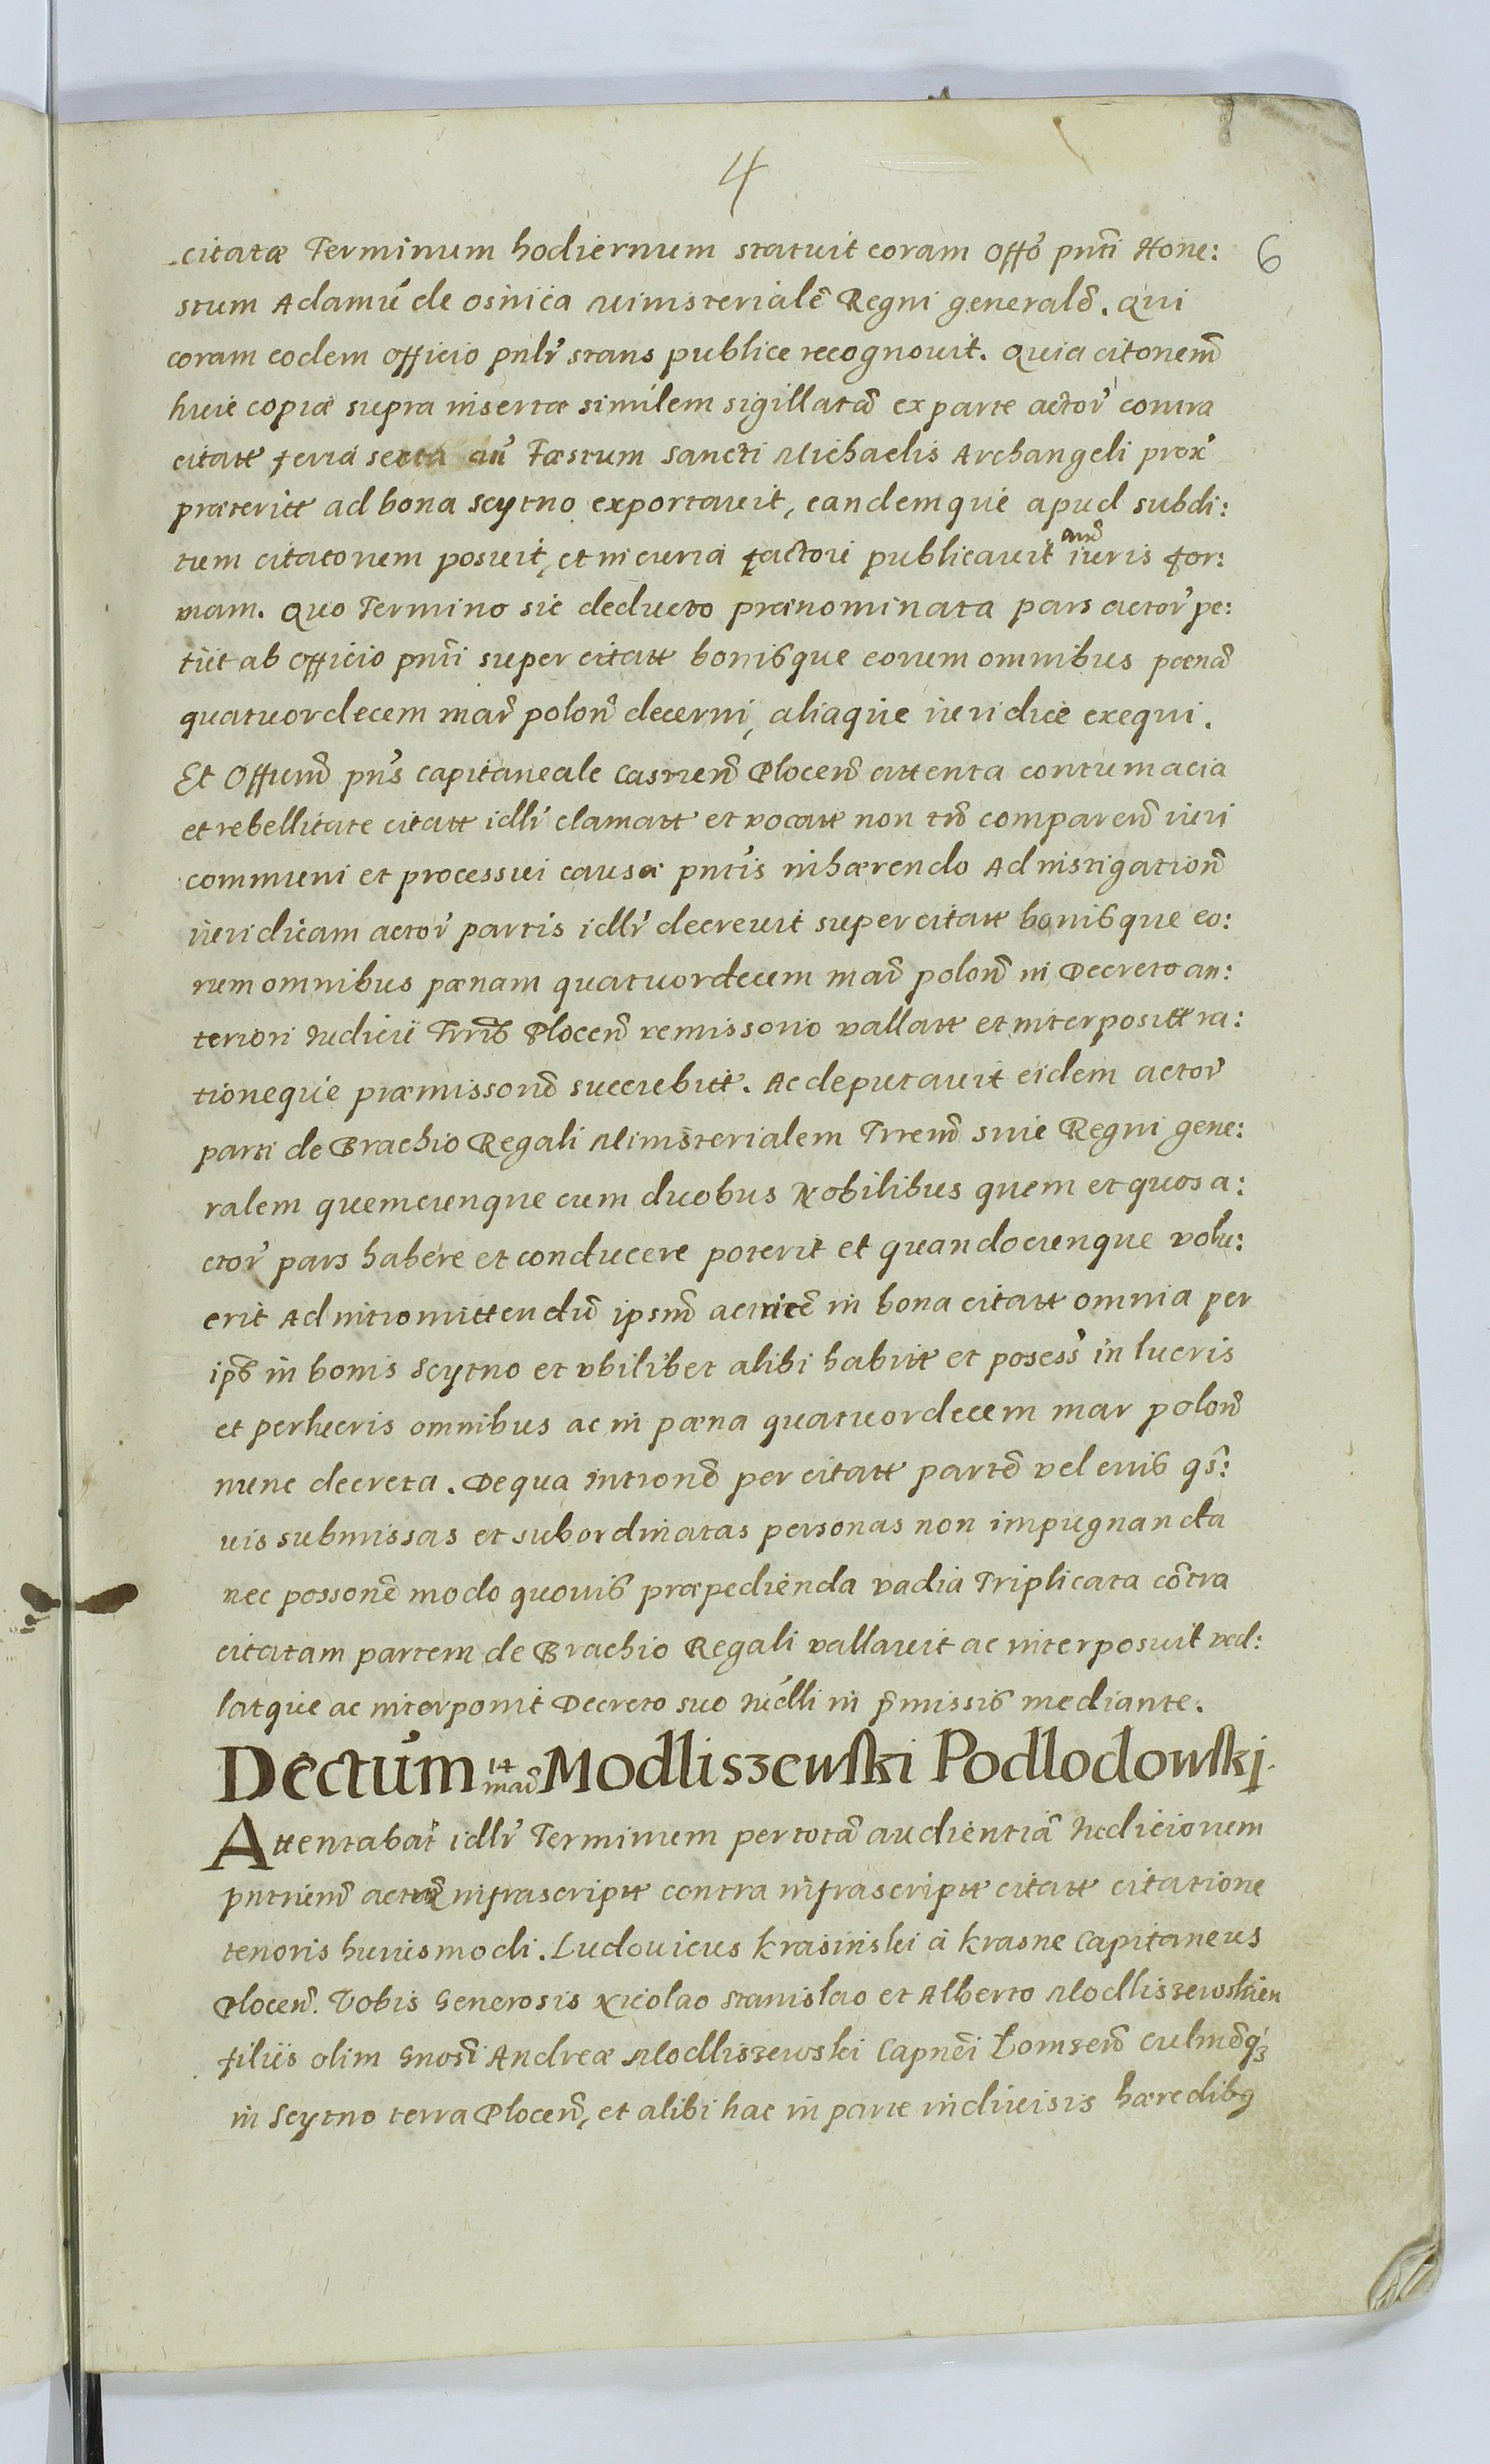 4
citatæ Terminum hodiernum statuit coram Offo pnti Hone: 6
stum Adamū de osnica ministerialē Regni generalē. Qui
coram eodem officio pnlr stans publice recognovit. Quia citonem
huic copiæ supra insertæ similem sigillatā ex parte actor contra
citatt feria sexta an Fæstum Sancti Michaelis Archangeli prox
præteritt ad bona Scytno exportavit, eandemque apud subdi:
tum citatonem posuit, et in curia factori publicavit aud iuris for:
mam. Quo Termino sic deducto prænominata pars actor pe:
tiit ab officio pnti super citatt bonisque eorum omnibus pænā
quatuordecem mar polon decerni, aliaque iuridice exequi.
Et Offium pns capitaneale Castren Plocen attenta contumacia
et rebellitate citatt idlr clamatt et vocatt non tn comparen iuri
communi et processui causæ pntis inhærendo Ad instigation
iuridicam actor partis idlr decrevit super citatt bonisque eo:
rum omnibus pænam quatuordecem mar polon in Decreto an:
teriori Iudicii Trris Plocen remissorio vallatt et interpositt ra:
tioneque præmissorū succubitt. Ac deputavit eidem actor
parti de Brachio Regali Ministerialem Trrem sive Regni gene:
ralem quemcunque cum duobus Nobilibus quem et quos a:
ctor pars habere et conducere poterit et quandocunque volu:
erit Ad intromittendū ipsm actricē in bona citatt omnia per
ips in bonis Scytno et ubilibet alibi habitt et posess in lucris
et perlucris omnibus ac in pæna quatuordecem mar polon
nunc decreta. De qua intronē per citatt partē vel eius qs:
vis submissas et subordinatas personas non impugnanda
nec possonē modo quovis præpedienda vadia Triplicata cōtra
citatam partem de Brachio Regali vallavit ac interposuit val:
latque ac interponit Decreto suo nulli in pmissis mediante.
Dectum 14 mar Modliszewski Podlodowski.
Attentabat idlr Terminum per totā audientiā Iudicionem
pntium actor infrascriptt contra infrascriptt citatt citatione
tenoris huiusmodi. Ludovicus Krasinski à Krasne Capitaneus
Plocen. Vobis Generosis Nicolao Stanislao et Alberto Modliszewskien
filiis olim Gnosi Andreæ Modliszewski Capnei Łomzen Culmenq3
in Scytno terra Plocen, et alibi hac in parte indivisis hæredibus